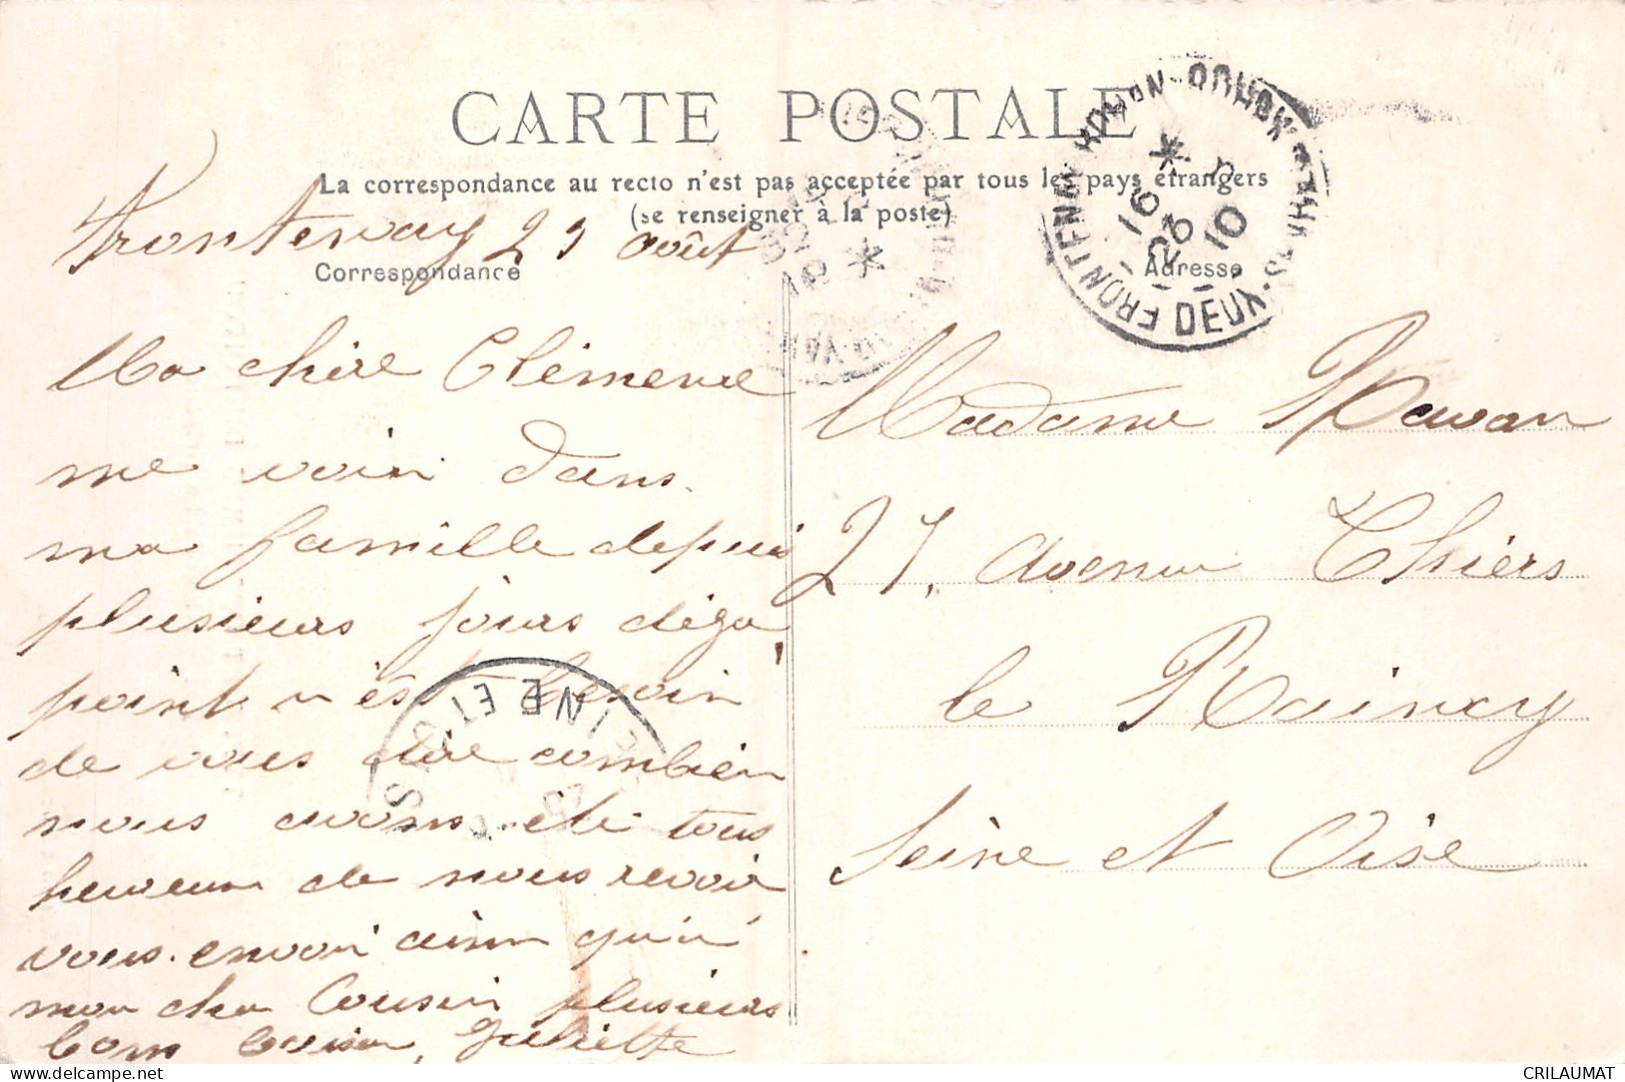 CARTE POSTALE
La correspondance au recto n'est pas acceptée par tous les pays étrangers
(se renseigner à la poste)
Frontenay 25 août
Correspondance
Ma chère Clémence
me voici dans
ma famille depuis
plusieurs jours déga
point n'est besoin
de vous dire combien
nous avons été tous
heureux de nous revoir
vous envoi ainsi qu'a
mon cher Cousin plusieurs
bons baisers, Juliette
Adresse
Madame Ravan
27, Avenue Thiers
le Raincy
Seine et Oise
FRONTENAY ROHAN-ROHAN DEUX-S
16
26
10
INE ET OIS
CRILAUMAT